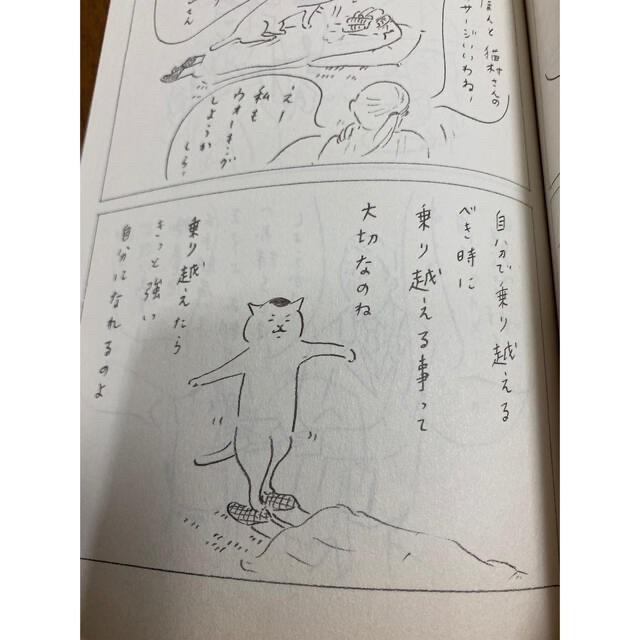 ほんと猫村さんの
サージいいわねー
さん
えー
私も
ウォーキング
しようか
しらー
自分で乗り越える
べき時に
乗り越える事って
大切なのね
乗り越えたら
きっと強い
自分になれるのよ